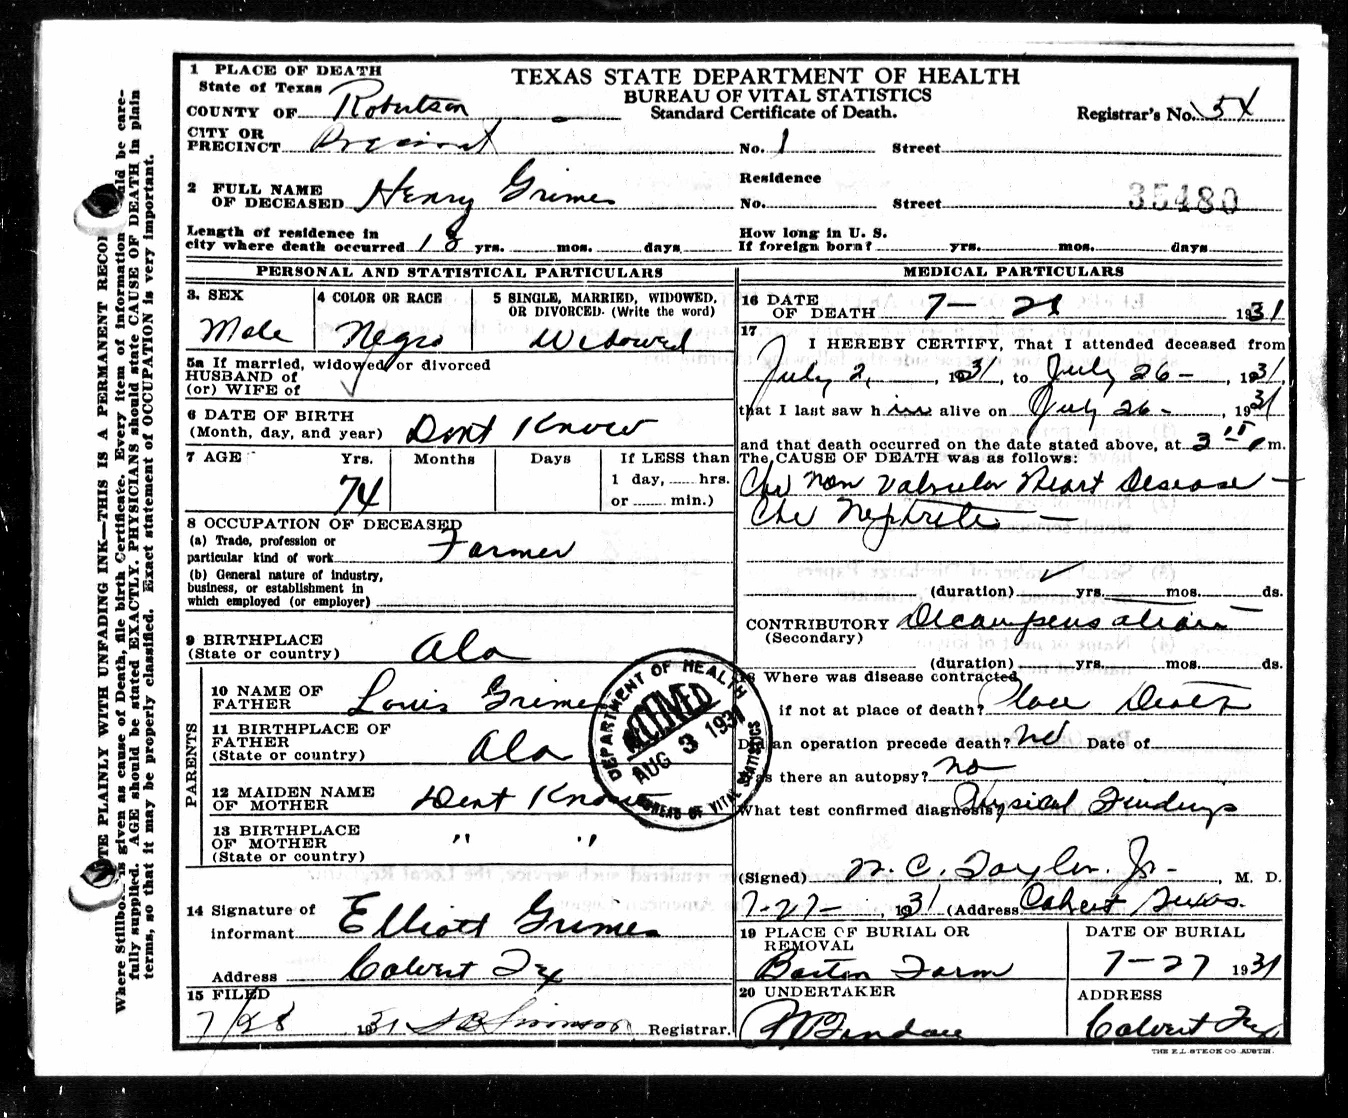 1 PLACE OF DEATH
TEXAS STATE DEPARTMENT OF HEALTH
State of Texas
BUREAU OF VITAL STATISTICS
COUNTY OF Robertson
Standard Certificate of Death.
Registrar's No. 54
CITY OR
PRECINCT Precinct No. 1 Street
Residence
2 FULL NAME
OF DECEASED Henry Grimes
No. Street 35480
Length of residence in
city where death occurred 18 yrs. mos. days
How long in U. S.
If foreign born? yrs. mos. days
PERSONAL AND STATISTICAL PARTICULARS
3. SEX
Male
4 COLOR OR RACE
Negro
5 SINGLE, MARRIED, WIDOWED,
OR DIVORCED. (Write the word)
Widowed
5a If married, widowed or divorced
HUSBAND of
(or) WIFE of
6 DATE OF BIRTH
(Month, day, and year) Dont Know
7 AGE Yrs. Months Days If LESS than
1 day, hrs.
or min.)
74
8 OCCUPATION OF DECEASED
(a) Trade, profession or
particular kind of work Farmer
(b) General nature of industry,
business, or establishment in
which employed (or employer)
9 BIRTHPLACE
(State or country) Ala
PARENTS
10 NAME OF
FATHER Louis Grimes
11 BIRTHPLACE OF
FATHER
(State or country) Ala
12 MAIDEN NAME
OF MOTHER Dont Know
13 BIRTHPLACE
OF MOTHER " "
(State or country)
14 Signature of
informant Elliott Grimes
Address Calvert Tex
15 FILED
7/28 1931 Registrar.
MEDICAL PARTICULARS
16 DATE
OF DEATH 7- 1931
17
I HEREBY CERTIFY, That I attended deceased from
July 2, 1931, to July 26-, 1931,
that I last saw him alive on July 26-, 1931
and that death occurred on the date stated above, at 3 m.
The CAUSE OF DEATH was as follows:
Valvular Heart Disease -
(duration) yrs. mos. ds.
CONTRIBUTORY Decompensation
(Secondary)
(duration) yrs. mos. ds.
18 Where was disease contracted
if not at place of death? Place Death
Did an operation precede death? no Date of
Was there an autopsy? no
What test confirmed diagnosis? Physical Findings
(Signed) N. C. Taylor Jr-, M. D.
7-27-, 1931 (Address Calvert Texas.
19 PLACE OF BURIAL OR
REMOVAL
Barton Farm
DATE OF BURIAL
7-27 1931
20 UNDERTAKER
ADDRESS
Calvert Tex
THE E.L. STECK CO. AUSTIN.
DEPARTMENT OF HEALTH
RECEIVED
AUG 3 1931
BUREAU OF VITAL STATISTICS
WRITE PLAINLY WITH UNFADING INK—THIS IS A PERMANENT RECORD
Where Stillborn is given as cause of Death, file birth Certificate. Every item of information should be care-
fully supplied. AGE should be stated EXACTLY. PHYSICIANS should state CAUSE OF DEATH in plain
terms, so that it may be properly classified. Exact statement of OCCUPATION is very important.